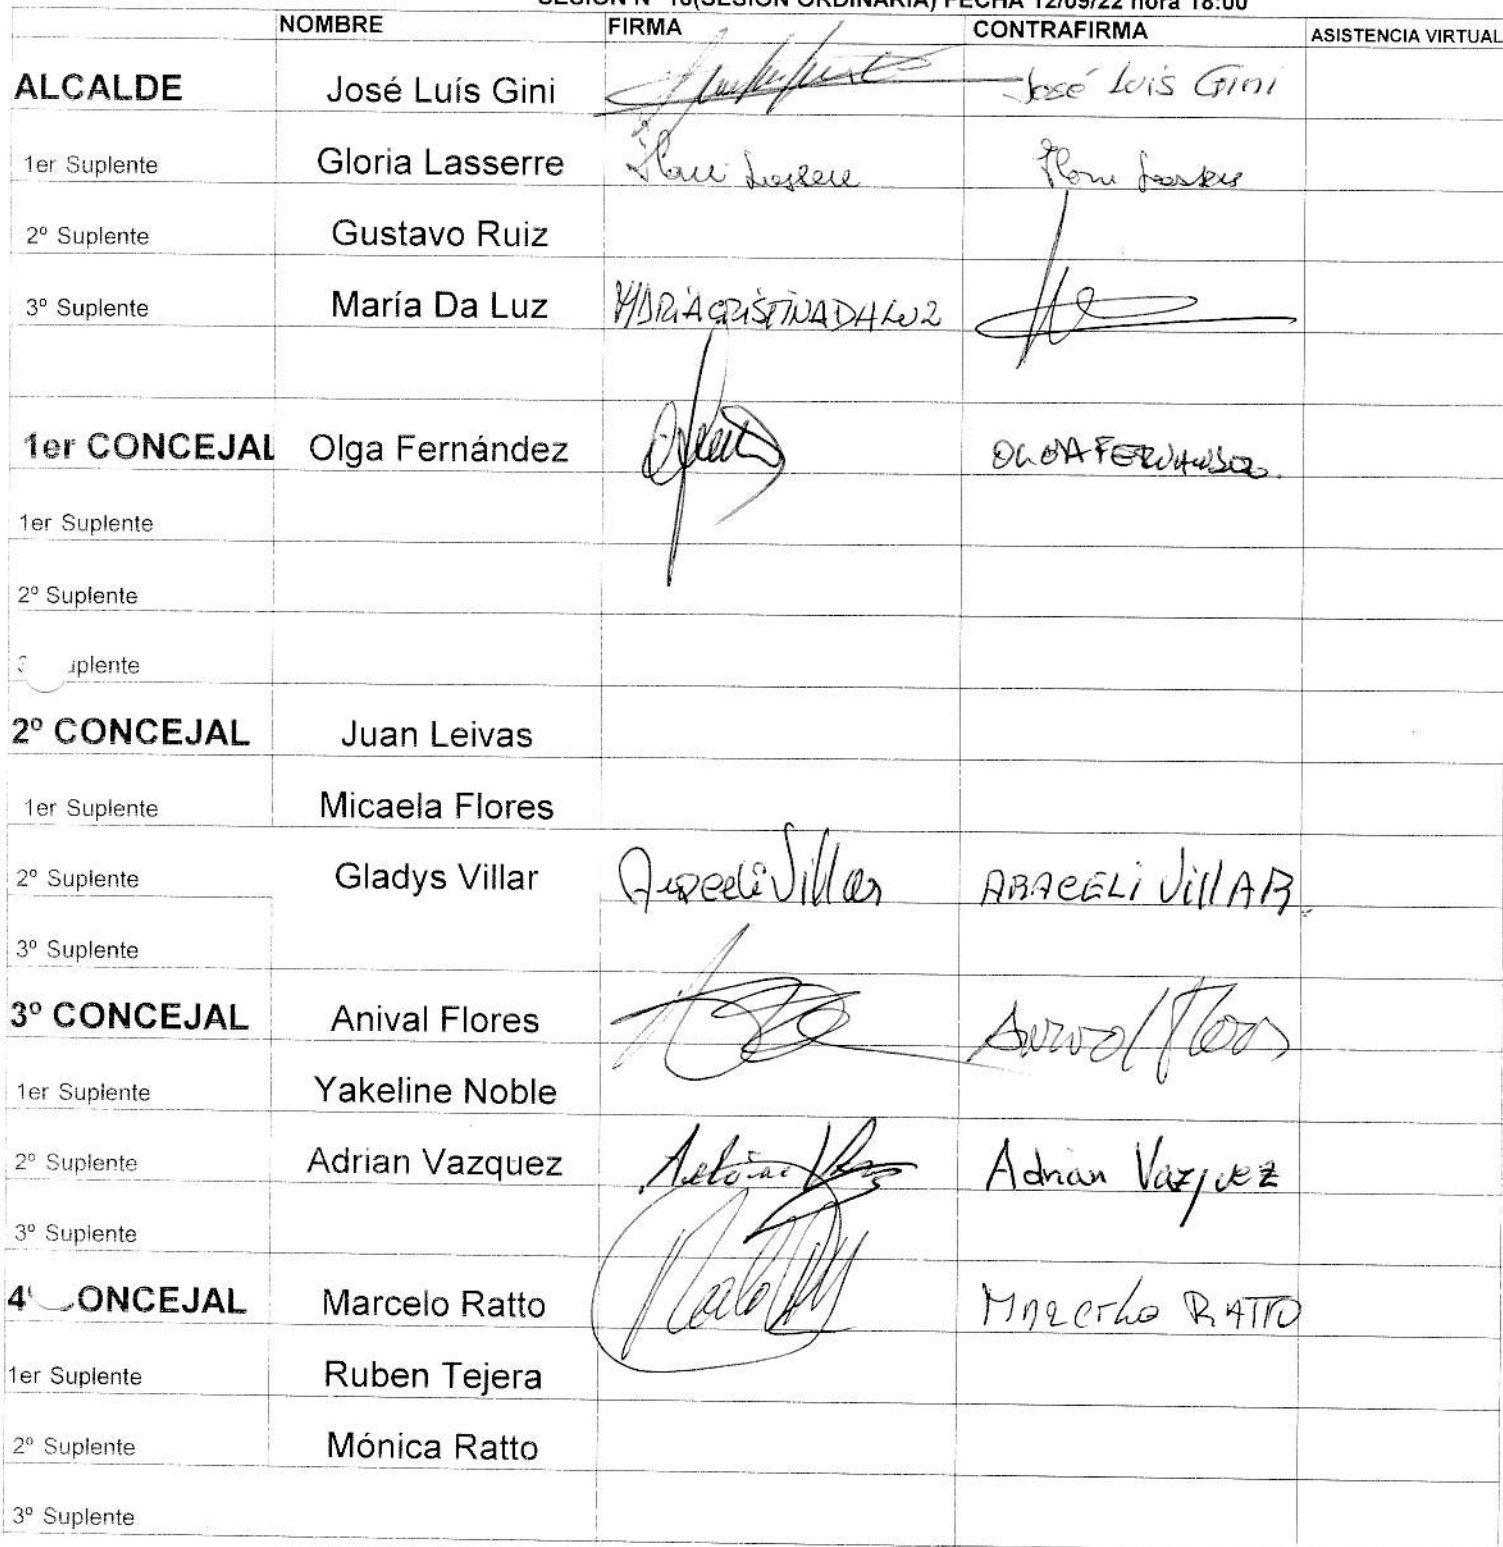 SESION N° 18(SESION ORDINARIA) FECHA 12/09/22 hora 18:00
NOMBRE FIRMA CONTRAFIRMA ASISTENCIA VIRTUAL
ALCALDE José Luís Gini José Luis Gini
1er Suplente Gloria Lasserre
2º Suplente Gustavo Ruiz
3º Suplente María Da Luz MARIA CRISTINA DA LUZ
1er CONCEJAL Olga Fernández OLGA FERNANDEZ.
1er Suplente
2º Suplente
3 uplente
2º CONCEJAL Juan Leivas
1er Suplente Micaela Flores
2º Suplente Gladys Villar Araceli Villar ARACELI VillAR
3º Suplente
3º CONCEJAL Anival Flores Anival Flores
1er Suplente Yakeline Noble
2º Suplente Adrian Vazquez Adrian Vazquez
3º Suplente
4º CONCEJAL Marcelo Ratto MARCELO RATTO
1er Suplente Ruben Tejera
2º Suplente Mónica Ratto
3º Suplente